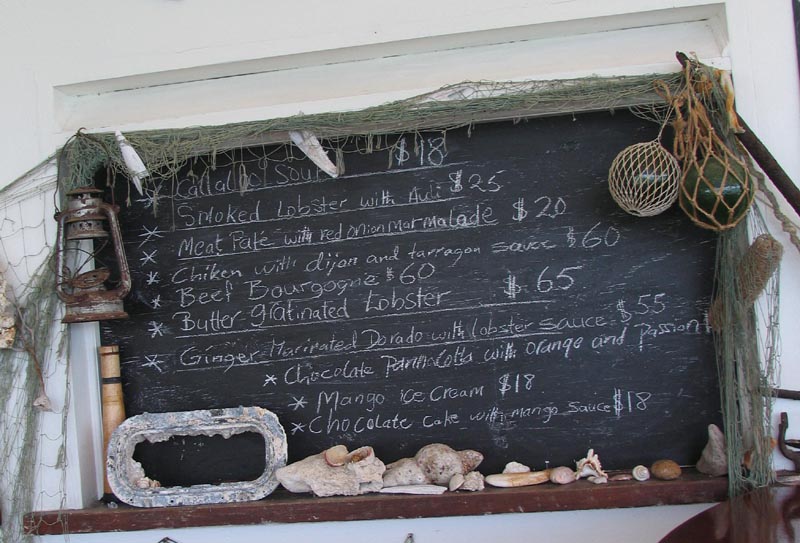 * Callaloo Soup $18
* Smoked Lobster with Aïoli $25
* Meat Pate with red onion marmalade $20
* Chiken with dijon and tarragon sauce $60
* Beef Bourgogne $60
* Butter gratinated Lobster $65
* Ginger Marinated Dorado with lobster sauce $55
* Chocolate Pannacotta with orange and Passion
* Mango ice Cream $18
* Chocolate Cake with mango sauce $18